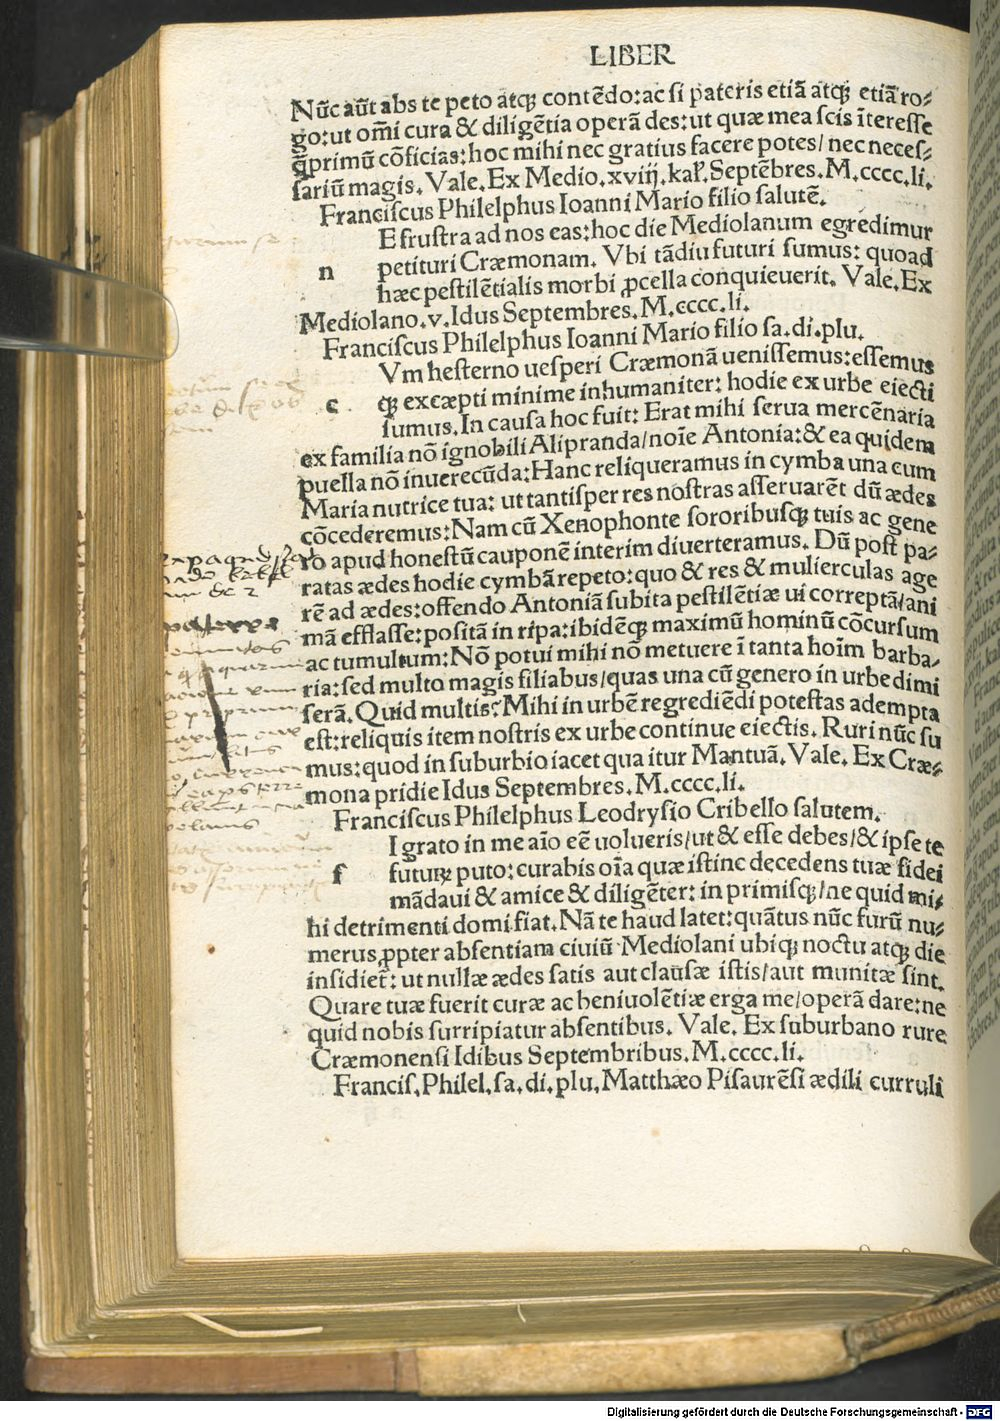 LIBER
Nūc aūt abs te peto atqꝫ contēdo:ac si pateris etiā atqꝫ etiā ro⸗
go:ut om̄i cura & diligētia operā des:ut quæ mea scis īteresse
q̄primū cōficias:hoc mihi nec gratius facere potes/nec neces⸗
sariū magis. Vale. Ex Medio.xviij.kal̓.Septēbres.M.cccc.li.
Franciſcus Philelphus Ioanni Mario filio ſalutē.
E fruſtra ad nos eas:hoc die Mediolanum egredimur
n petituri Cræmonam. Vbi tādiu futuri ſumus: quoad
hæc peſtilētialis morbi ꝓcella conquieuerit. Vale.Ex
Mediolano.v.Idus Septembres.M.cccc.li.
Franciſcus Philelphus Ioanni Mario filio ſa.di.plu.
Vm heſterno ueſperi Cræmonā ueniſſemus:eſſemus
c qꝫ excæpti minime inhumaniter: hodie ex urbe eiecti
ſumus.In cauſa hoc fuit: Erat mihi ſerua mercēnaria
ex familia nō ignobili Alipranda/noīe Antonia:& ea quidem
puella nō inuerecūda:Hanc reliqueramus in cymba una cum
Maria nutrice tua: ut tantiſper res noſtras aſſeruarēt dū ædes
cōcederemus:Nam cū Xenophonte ſororibuſqꝫ tuis ac gene
ro apud honeſtū cauponē interim diuerteramus. Dū poſt pa⸗
ratas ædes hodie cymbā repeto:quo & res & mulierculas age
rē ad ædes:offendo Antoniā ſubita peſtilētiæ ui correptā/ani
mā efflaſſe:poſitā in ripa:ibidēqꝫ maximū hominū cōcurſum
ac tumultum:Nō potui mihi nō metuere ī tanta hoīm barba⸗
ria:ſed multo magis filiabus/quas una cū genero in urbe dimi
ſerā. Quid multis? Mihi in urbē regrediēdi poteſtas adempta
eſt:reliquis item noſtris ex urbe continue eiectis. Ruri nūc ſu
mus:quod in ſuburbio iacet qua itur Mantuā. Vale. Ex Cræ⸗
mona pridie Idus Septembres. M.cccc.li.
Franciſcus Philelphus Leodryſio Cribello ſalutem.
I grato in me aīo eē uolueris/ut & eſſe debes/& ipſe te
f futuꝝ puto:curabis oīa quæ iſtinc decedens tuæ fidei
mādaui & amice & diligēter: in primiſqꝫ/ne quid mi⸗
hi detrimenti domi fiat. Nā te haud latet:quātus nūc furū nu⸗
merus ꝓpter abſentiam ciuiū Mediolani ubiqꝫ noctu atqꝫ die
inſidiet̄: ut nullæ ædes ſatis aut clauſæ iſtis/aut munitæ ſint.
Quare tuæ fuerit curæ ac beniuolētiæ erga me/operā dare:ne
quid nobis ſurripiatur abſentibus. Vale. Ex ſuburbano rure
Cræmonenſi Idibus Septembribus.M.cccc.li.
Franciſ.Philel.ſa.di.plu.Matthæo Piſaurēſi ædili curruli
Digitalisierung gefördert durch die Deutsche Forschungsgemeinschaft - DFG